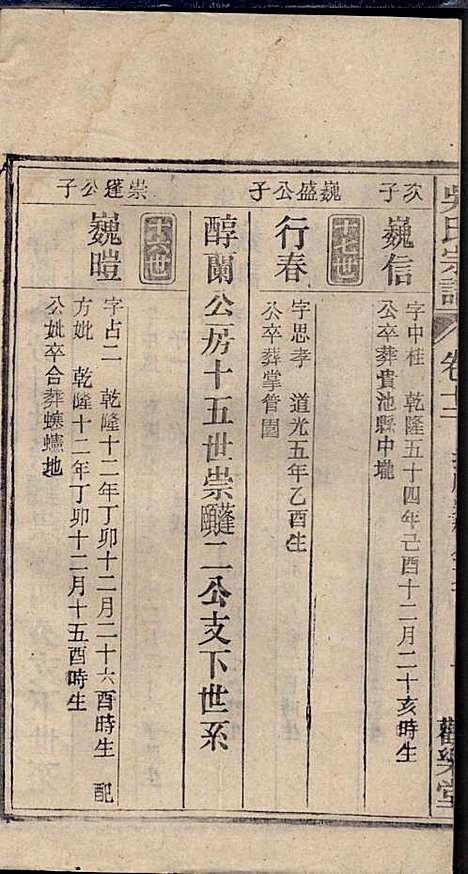 吳氏宗譜
卷十二
觀樂堂
次子
巍信
字中桂 乾隆五十四年己酉十二月二十亥時生
公卒葬貴池縣中壠
巍盛公子
十七世
行春
字思孝 道光五年乙酉生
公卒葬掌管園
醇蘭公房十五世崇蓬二公支下世系
崇蓬公子
十六世
巍暟
字占二 乾隆十二年丁卯十二月二十六酉時生 配
方妣 乾隆十二年丁卯十二月十五酉時生
公妣卒合葬地